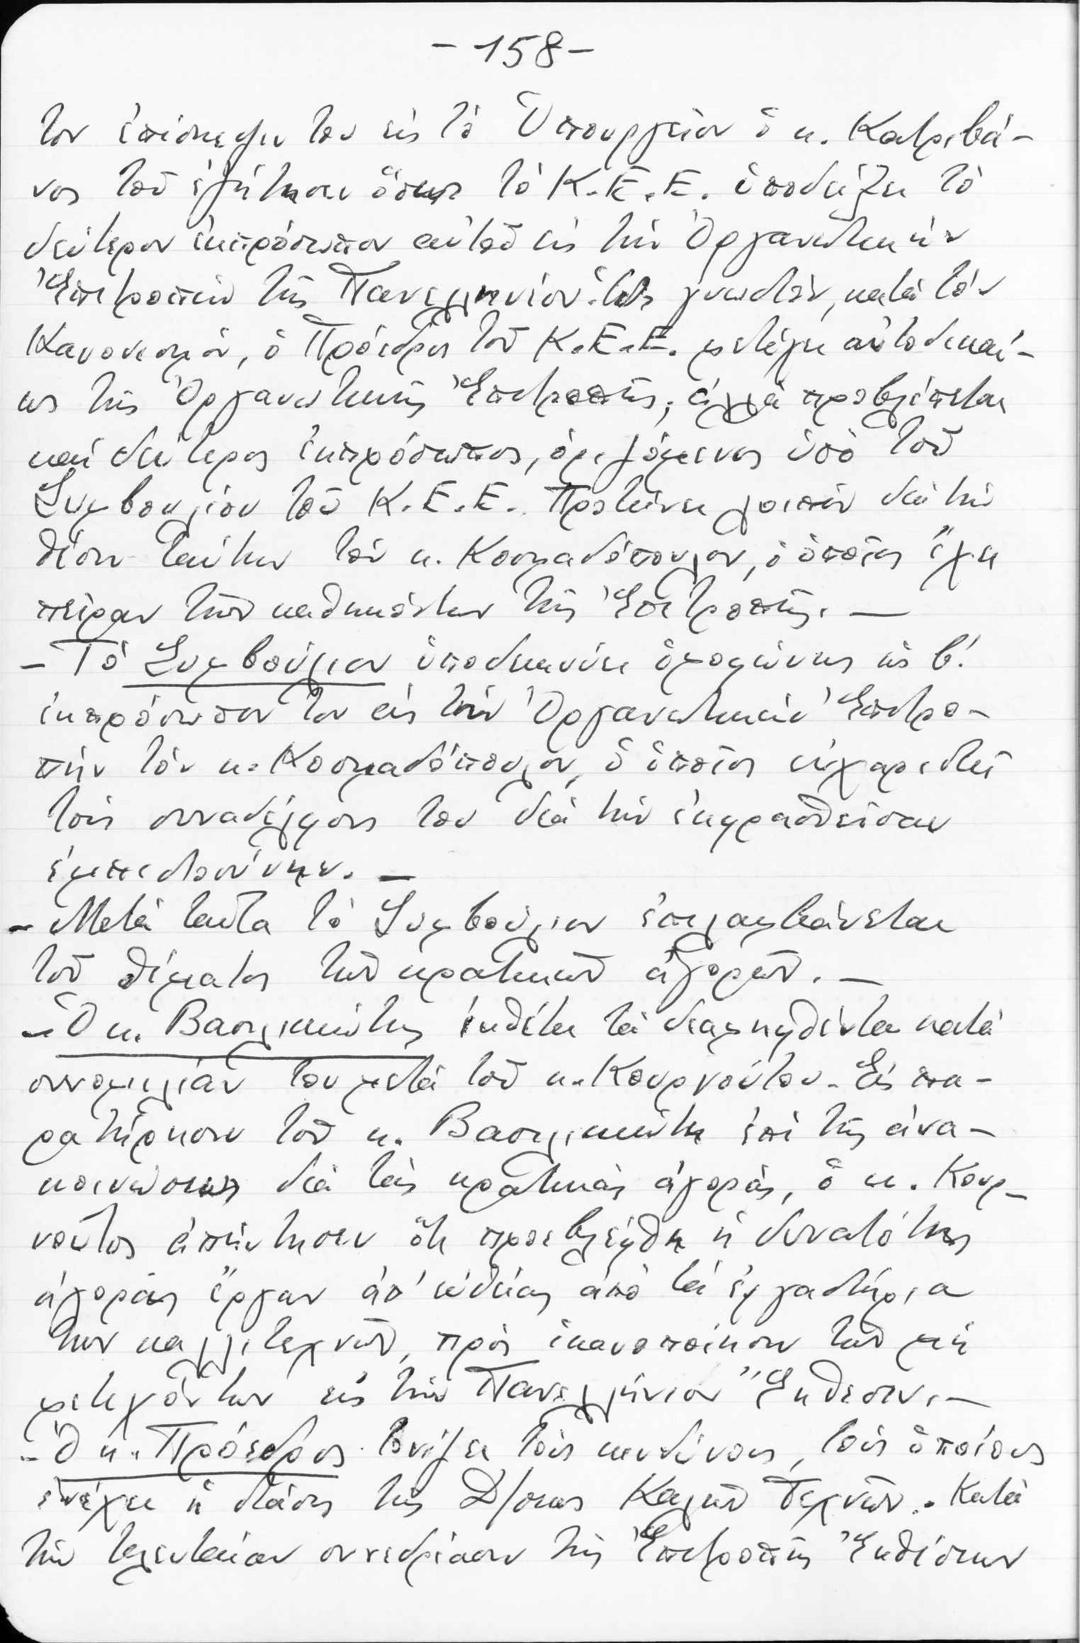 -158-
τον ἐπίσκεψιν του εἰς τὸ Ὑπουργεῖον ὁ κ. Κατριβά-
νος τοῦ ἐζήτησεν ὅπως τὸ Κ.Ε.Ε. ὑποδείξει τὸ
δεύτερον ἐκπρόσωπον αὐτοῦ εἰς τὴν Ὀργανωτικὴν
Ἐπιτροπὴν τῆς Πανελληνίου. Ὡς γνωστὸν, κατὰ τὸν
Κανονισμόν, ὁ Πρόεδρος τοῦ Κ.Ε.Ε. μετέχει αὐτοδικαί-
ως τῆς Ὀργανωτικῆς Ἐπιτροπῆς, ἀλλὰ προβλέπεται
καὶ δεύτερος ἐκπρόσωπος, ὁριζόμενος ὑπὸ τοῦ
Συμβουλίου τοῦ Κ.Ε.Ε. Προτείνει λοιπὸν διὰ τὴν
θέσιν ταύτην τὸν κ. Κοσμαδόπουλον, ὁ ὁποῖος ἔχει
πεῖραν τῶν καθηκόντων τῆς Ἐπιτροπῆς. —
- Τὸ Συμβούλιον ὑποδεικνύει ὁμοφώνως ὡς β!
ἐκπρόσωπόν του εἰς τὴν Ὀργανωτικὴν Ἐπιτρο-
πὴν τὸν κ. Κοσμαδόπουλον, ὁ ὁποῖος εὐχαριστεῖ
τοὺς συναδέλφους του διὰ τὴν ἐκφρασθεῖσαν
ἐμπιστοσύνην. —
- Μετὰ ταῦτα τὸ Συμβούλιον ἐπιλαμβάνεται
τοῦ θέματος τῶν κρατικῶν ἀγορῶν. —
- Ὁ κ. Βασιλικιώτης ἐκθέτει τὰ διαμειφθέντα κατὰ
συνομιλίαν του μετὰ τοῦ κ. Κουρνούτου. Εἰς πα-
ρατήρησιν τοῦ κ. Βασιλικιώτη ἐπὶ τῆς ἀνα-
κοινώσεως διὰ τὰς κρατικὰς ἀγοράς, ὁ κ. Κουρ-
νοῦτος ἀπήντησεν ὅτι προεβλέφθη ἡ δυνατότης
ἀγορᾶς ἔργων ἀπ' εὐθείας ἀπὸ τὰ ἐργαστήρια
των καλλιτεχνῶν, πρὸς ἱκανοποίησιν τῶν μὴ
μετεχόντων εἰς τὴν Πανελλήνιον Ἔκθεσιν. —
- Ὁ κ. Πρόεδρος τονίζει τοὺς κινδύνους, τοὺς ὁποίους
ἐνέχει ἡ στάσις τῆς Δ/σεως Καλῶν Τεχνῶν. Κατὰ
τὴν τελευταίαν συνεδρίασιν τῆς Ἐπιτροπῆς Ἐκθέσεων